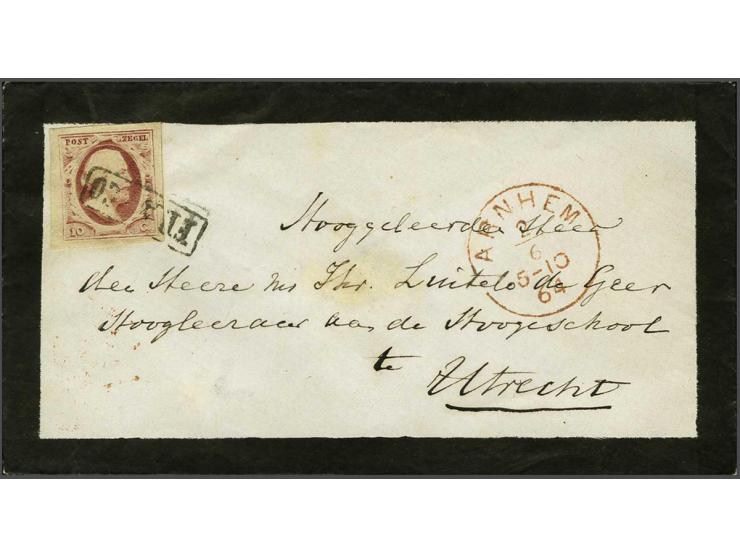 POST ZEGEL
10 C.
FRANCO
ARNHEM
2
6
5-10
64
Hooggeleerden Heer
den Heere Mr Jhr. Luitelo de Geer
Hoogleeraar aan de Hoogeschool
te
Utrecht